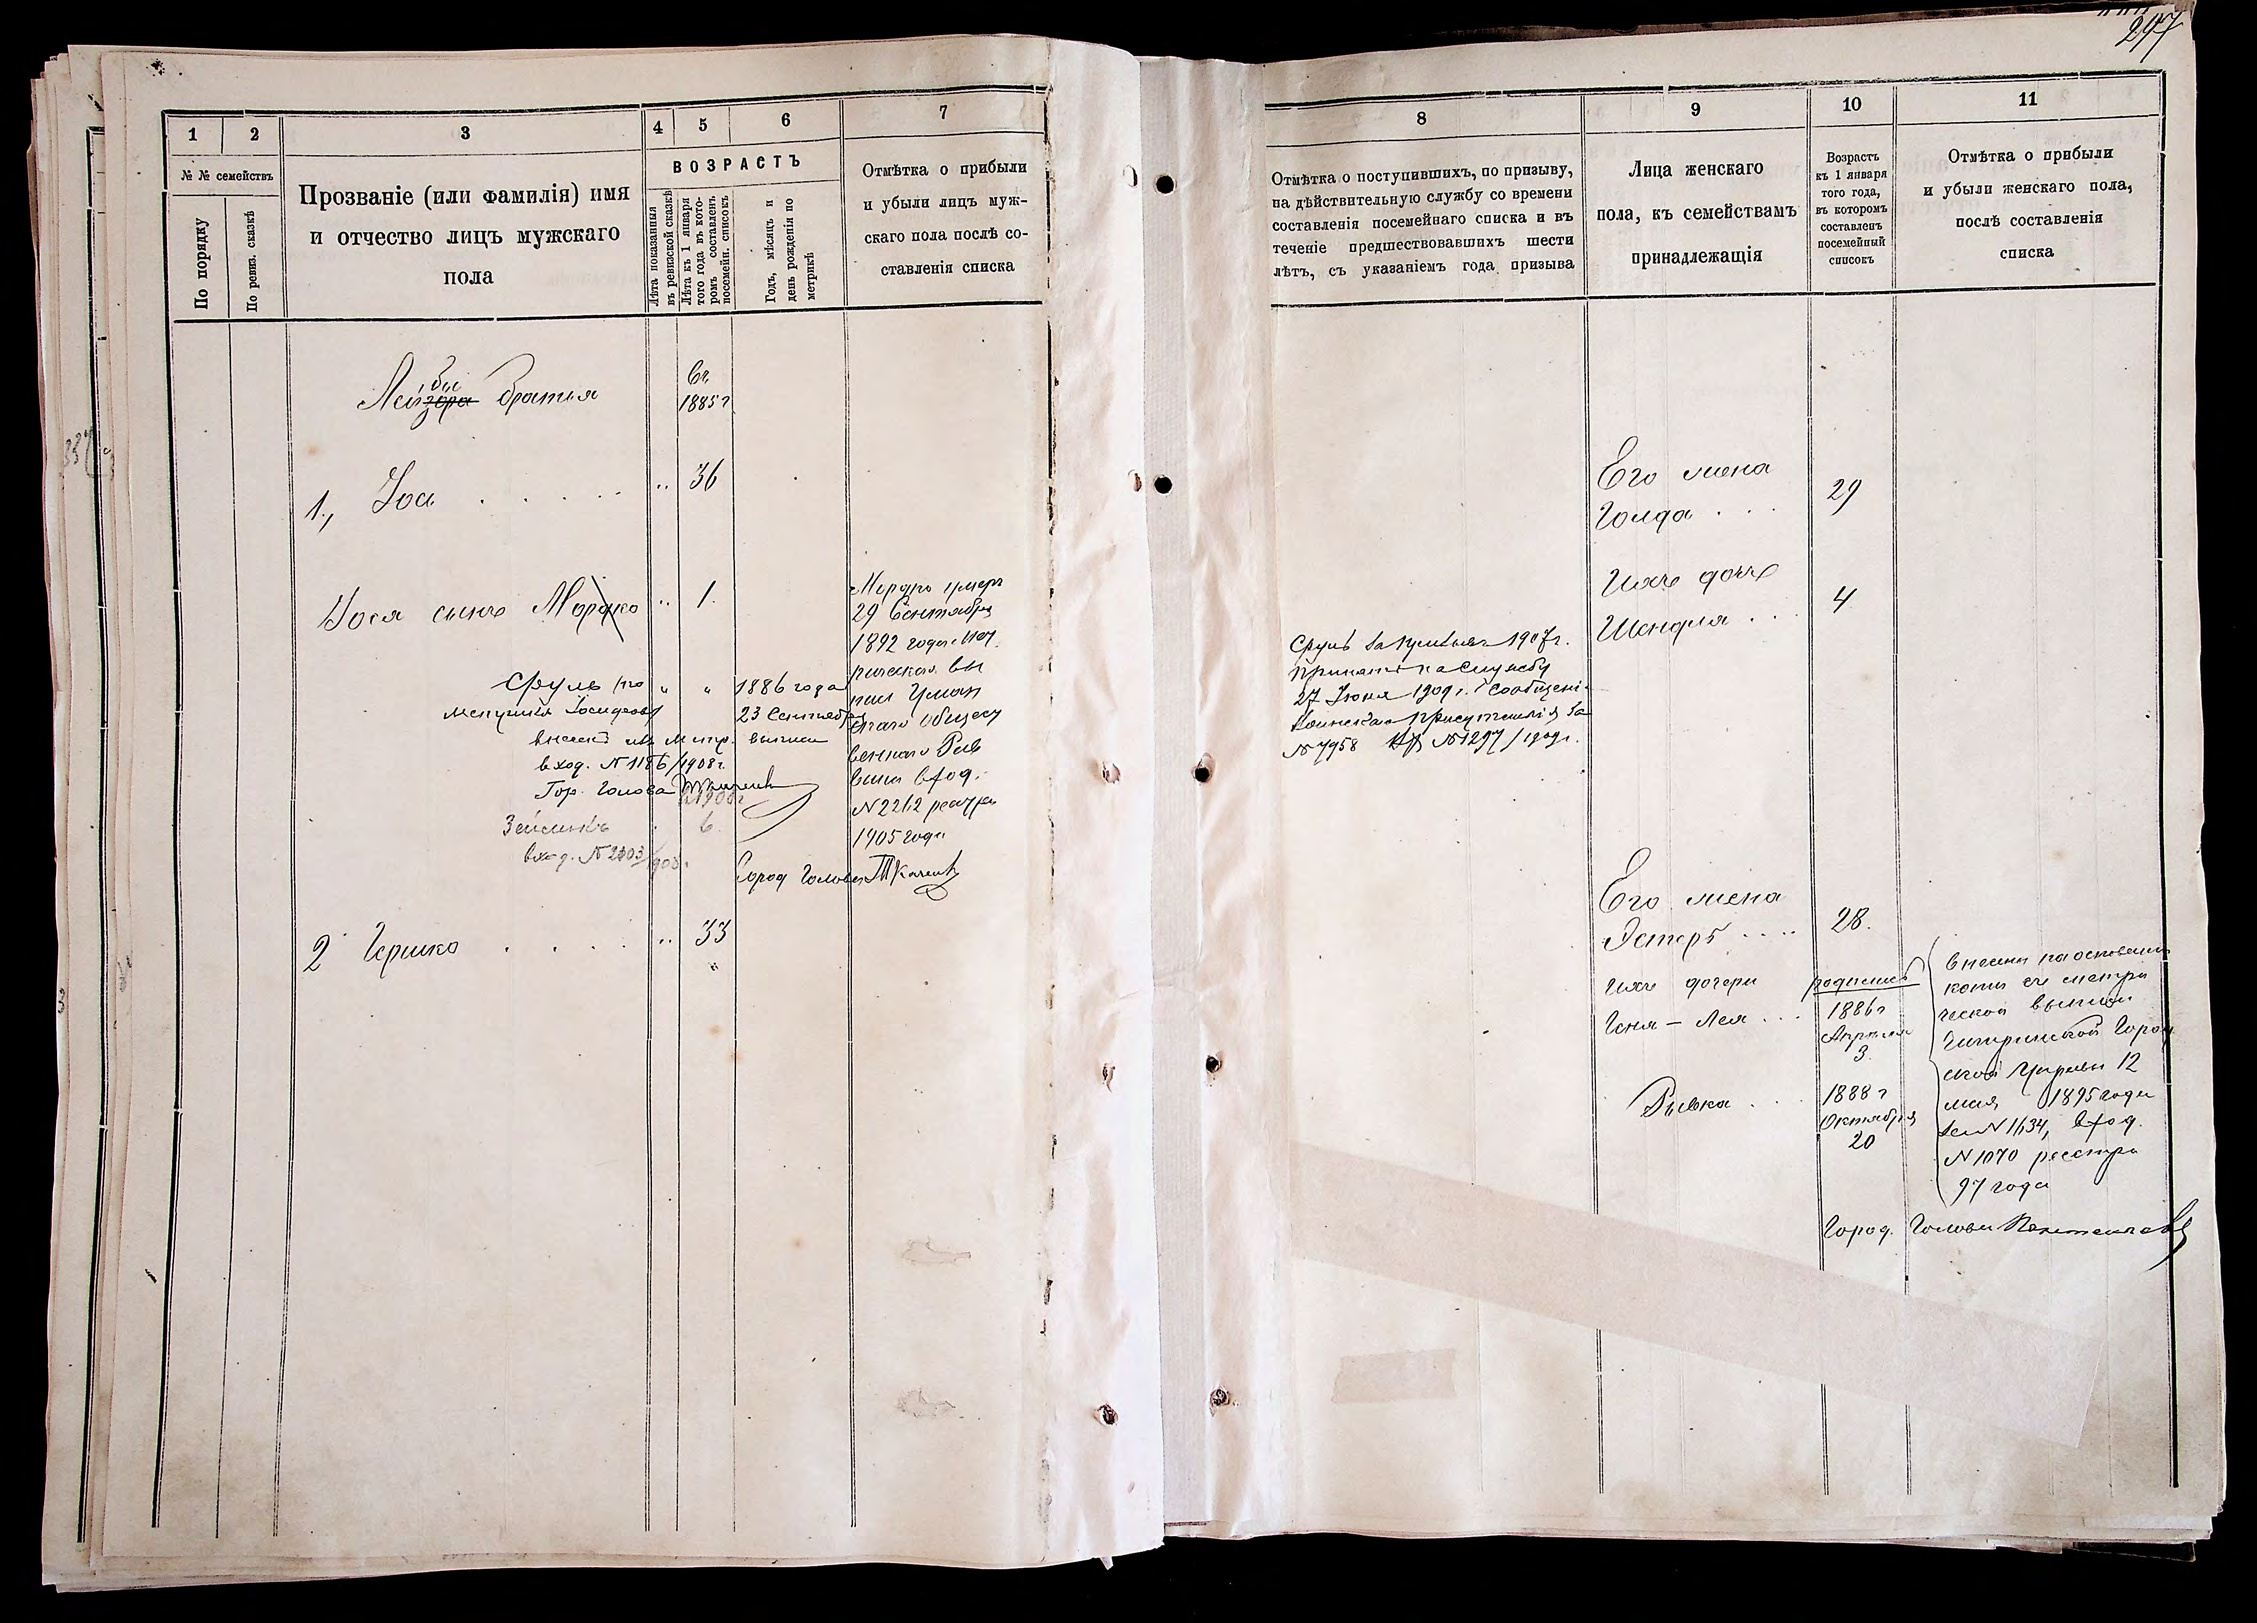 247
1 2 3 4 5 6 7
№ № семействъ
По порядку
По ревиз. сказкѣ
Прозваніе (или фамилія) имя
и отчество лицъ мужскаго
пола
ВОЗРАСТЪ
Лѣта показанныя
въ ревизской сказкѣ
Лѣта къ 1 января
того года въ кото-
ромъ составленъ
посемейн. списокъ
Годъ, мѣсяцъ и
день рожденія по
метрикѣ
Отмѣтка о прибыли
и убыли лицъ муж-
скаго пола послѣ со-
ставленія списка
бы
Лейзера братья
въ
1885 г
1, Іос . . . . . " 36
Іося сынъ Мордко " 1.
Мордко умеръ
29 Сентября
1892 года. Мет
рическая вы
пись Уман
скаго общест
веннаго Рав
вина вход.
N 2212 реестра
1905 года
Город Голова Ткаченко
Сруль (по " " 1886 года
23 Сентября
внесенъ изъ метр. выписи
вход. N 1186/1908 г.
Гор. Голова
1908 г
Зейликъ 6
вход. N 2303/908 г.
2 Гершко . . . . " 33
"
8 9 10 11
Отмѣтка о поступившихъ, по призыву,
на дѣйствительную службу со времени
составленія посемейнаго списка и въ
теченіе предшествовавшихъ шести
лѣтъ, съ указаніемъ года призыва
Лица женскаго
пола, къ семействамъ
принадлежащія
Возрастъ
къ 1 января
того года,
въ которомъ
составленъ
посемейный
списокъ
Отмѣтка о прибыли
и убыли женскаго пола,
послѣ составленія
списка
Его жена
Голда . . . 29
Ихъ дочь
Шендля . . . 4
Сруль 1907 г.
принятъ на службу
27 Іюня 1909 г. Сообщеніе
Воинскаго присутствія за
№ 7958 № 1297/1909 г.
Его жена
Эстеръ . . . . 28.
Ихъ дочери родились
Геня - Лея . . . 1886 г
Апрѣля
3.
Ривка . . . 1888 г
Октября
20
внесены на основаніи
копіи съ метри
ческой выписи
Чигиринской Город
ской Управы 12
мая 1895 года
за N 1634, вход.
N 1070 реестра
97 года
Город. Голова